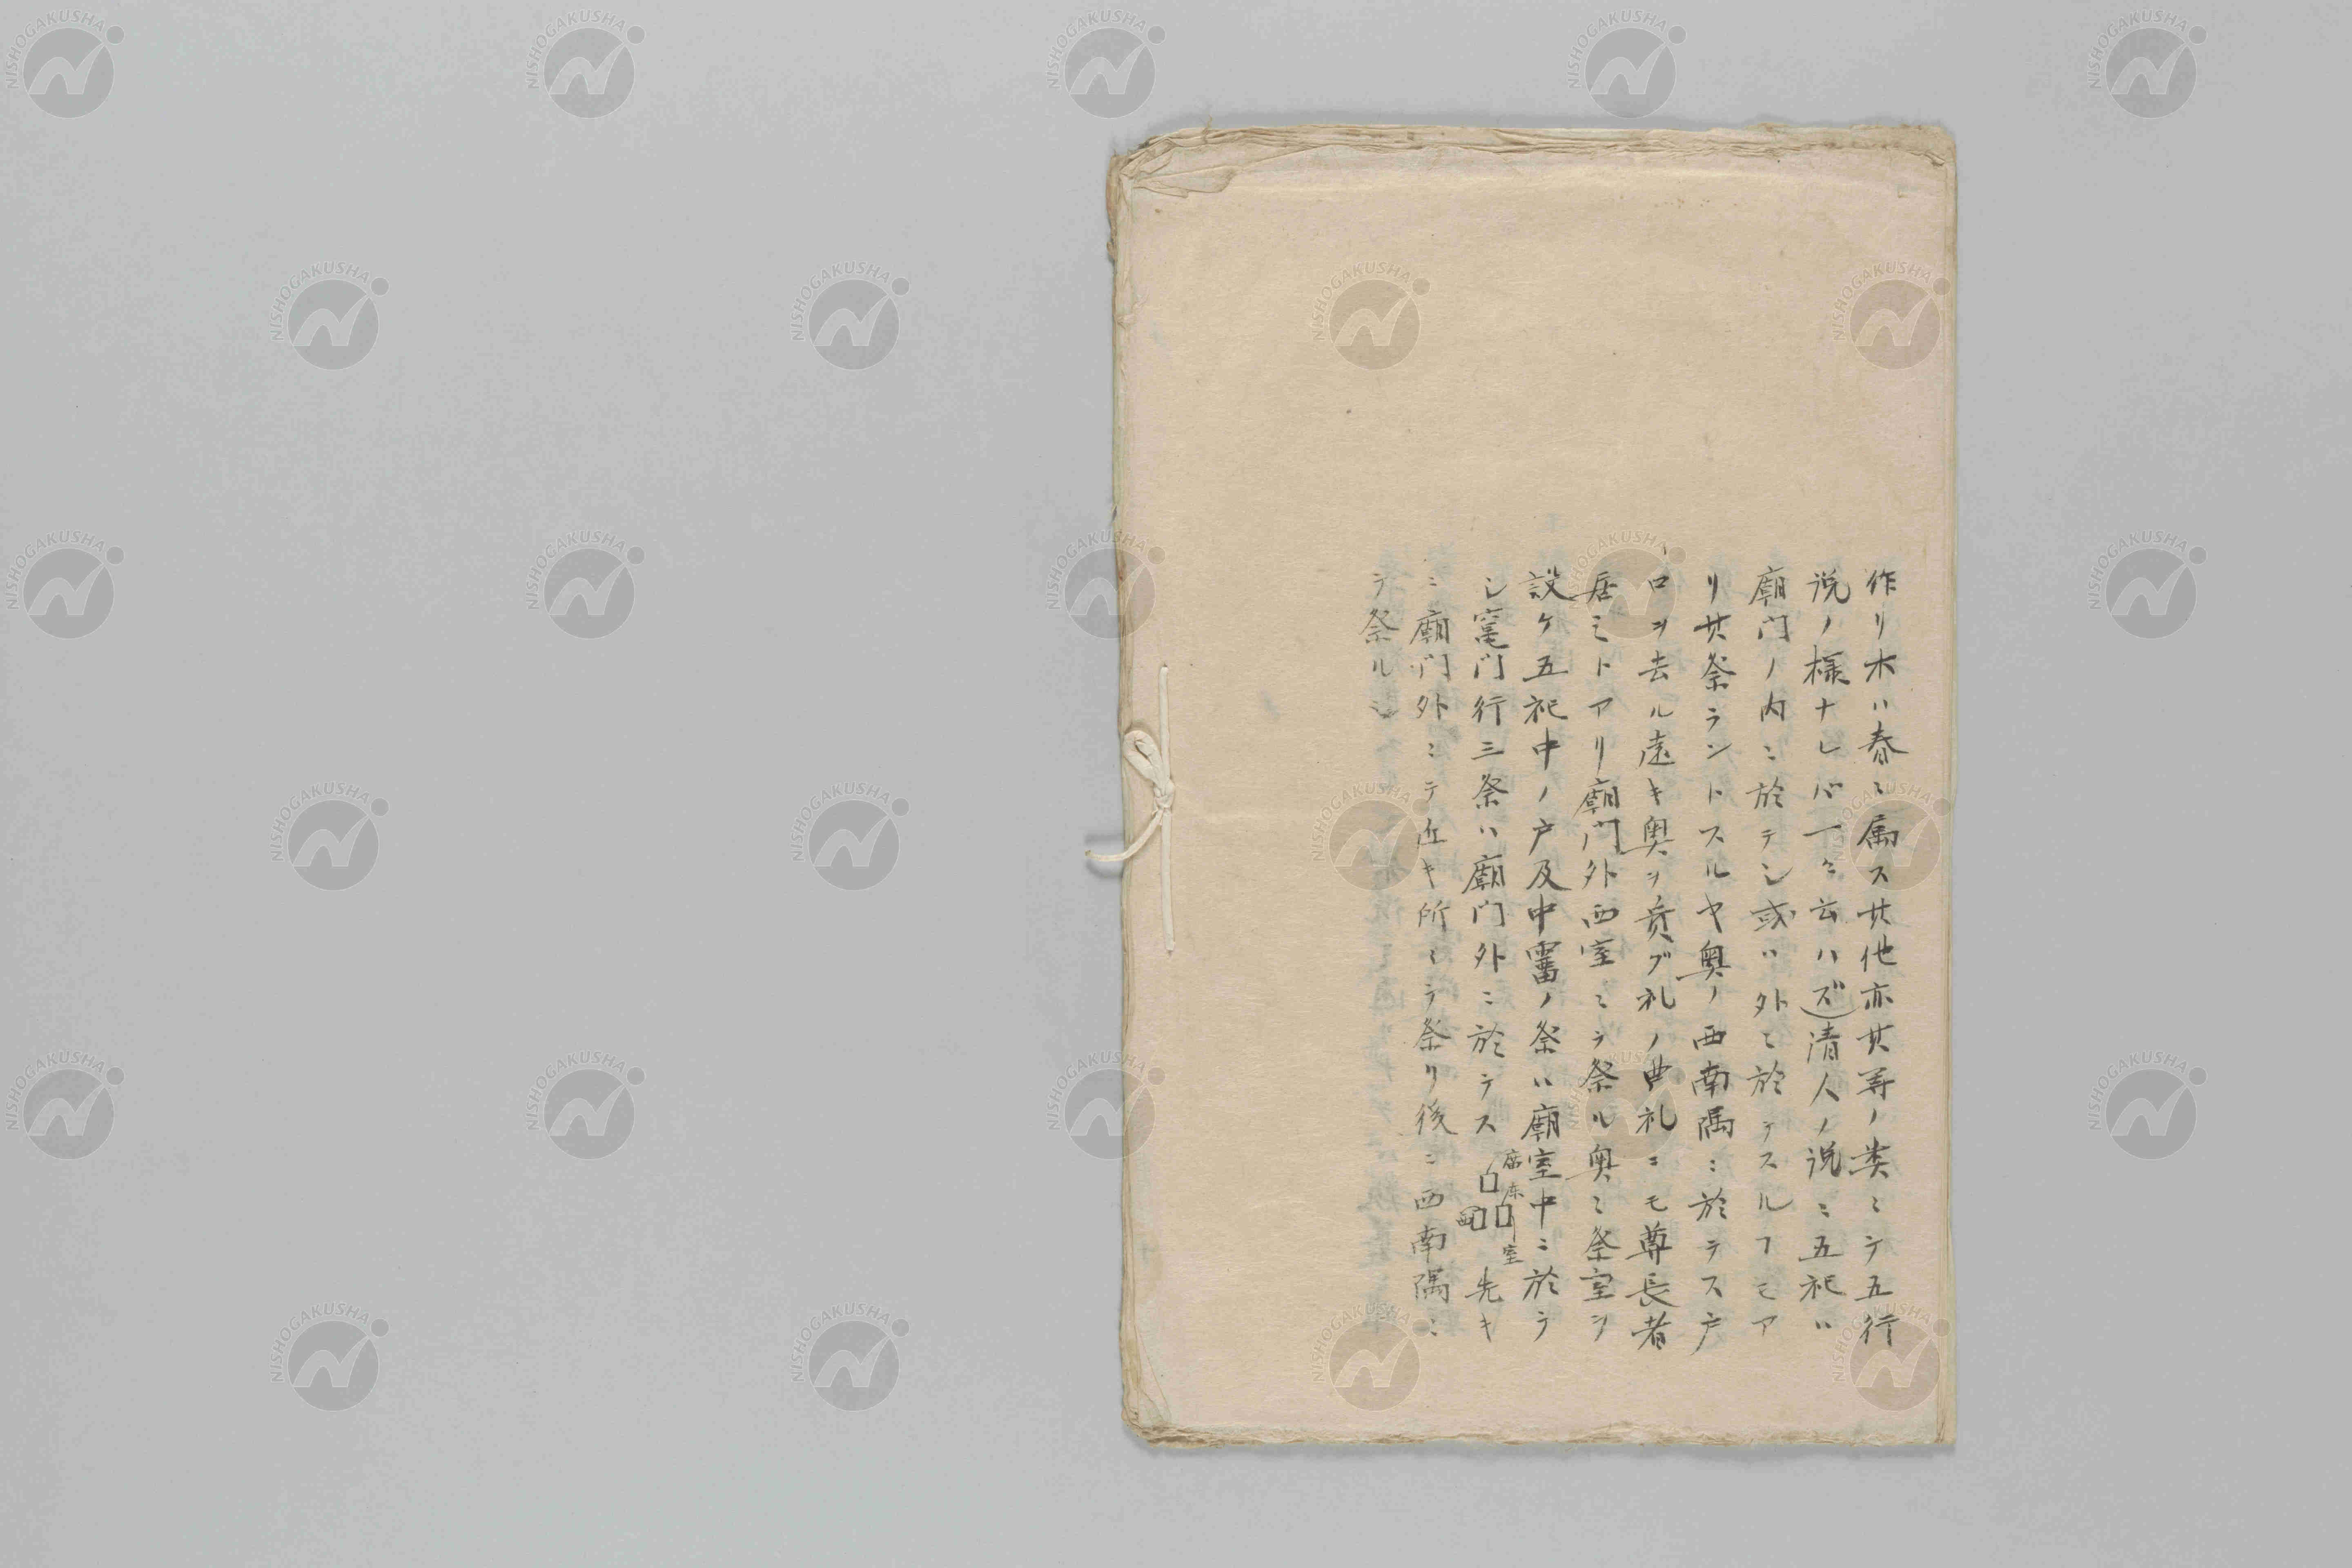 作リ木ハ春ニ属ス其他亦其等ノ类ニテ五行
说ノ様ナレバ一々云ハズ清人ノ说ニ五祀ハ
廟门ノ内ニ於テシ或ハ外ニ於テスルヿモア
リ其祭ラントスルヤ奥ノ西南隅ニ於テス戸
口ヲ去ル遠キ奥ヲ貴ブ礼ノ曲礼ニモ尊長者
居ミトアリ廟门外西室ニテ祭ル奥ニ祭室ヲ
設ケ五祀中ノ戸及中霤ノ祭ハ廟室中ニ於テ
シ竃门行三祭ハ廟门外ニ於テス
室
先キ
ニ廟门外ニテ近キ所ニテ祭リ後ニ西南隅ニ
テ祭ル
NISHOGAKUSHA